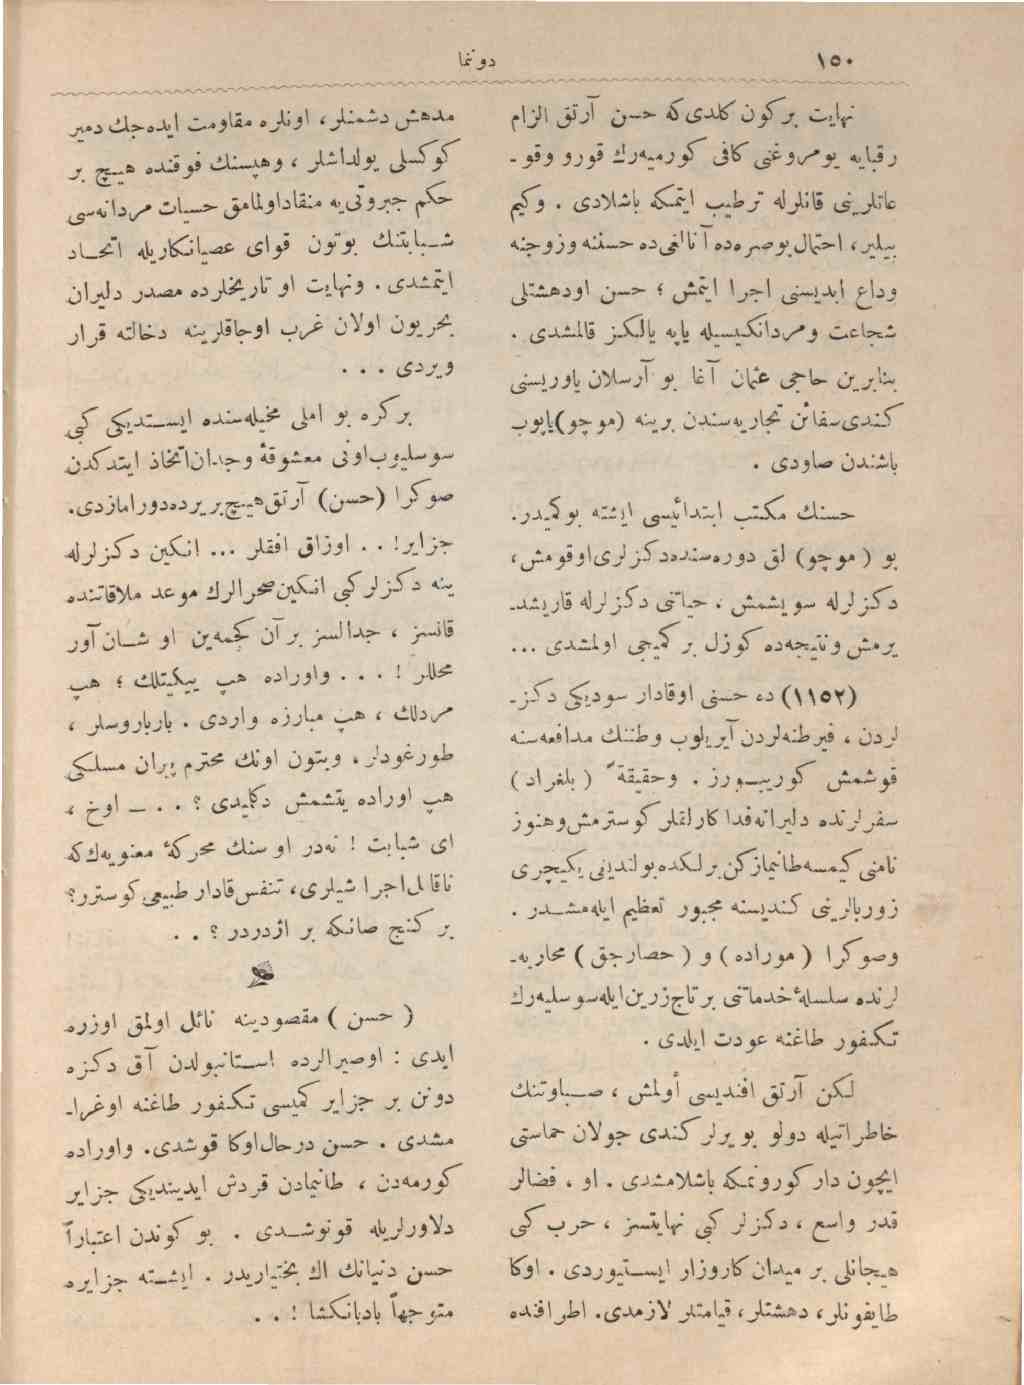 ١٥٠
دوننما
نهایت بر كون كلدی كه حسن آرتق الزام
رقبایه یومروغنی كافی كورمیه‌رك قورو وقو-
عاتلرینی قانلرله ترطیب ایتمكه باشلادی . وكیم
بیلیر، احتمال بوصره‌ده آنالغی‌ده حسننه وزوجنه
وداع ابدیسنی اجرا ایتمش ؛ حسن اودهشتلی
شجاعت ومردانكیسیله یاپه یالكز قالمشدی .
بنابرین حاجی عثمان آغا بو آرسلان یاوریسنی
كندی سفائن تجاریه‌سندن برینه (موچو) یاپوب
باشندن صاودی .
حسنك مكتب ابتدائیسی ایشته بوكمیدر.
بو ( موچو) لق دوره‌سنده‌دكزلری اوقومش،
دكزلرله سویشمش ، حیاتنی دكزلرله قاریشد-
یرمش ونتیجه‌ده كوزل بر كمیجی اولمشدی ...
(١١٥٢) ده حسنی اوقادار سودیكی دكز-
لردن ، فیرطنه‌لردن آیریلوب وطننك مدافعه‌سنه
قوشمش كورییورز . وحقیقةً ( بلغراد )
سفرلرنده دلیرانه فداكارلقلر كوسترمش وهنوز
نامنی كیمسه طانیمازكن برلكده بولندیغی یكیچری
زوربالرینی كندیسنه مجبور تعظیم ایله‌مشدر .
وصوكرا ( موراده ) و ( حصارجق ) محاربه-
لرنده سلسلهٔ خدماتنی برتاج زرین‌ایله سوسلیه‌رك
تكفور طاغنه عودت ایلدی .
لكن آرتق افندیسی اولمش ، صباوتنك
خاطراتیله دولو بو یرلر كندی جولان حماستی
ایچون دار كورونمكه باشلامشدی . او ، فضالر
قدر واسع ، دكزلر كبی نهایتسز ، حرب كبی
هیجانلی بر میدان كاروزار ایستیوردی . اوكا
طایفونلر، دهشتلر، قیامتلر لازمدی. اطرافنده
مدهش دشمنلر، اونلره مقاومت ایده‌جك دمیر
كوكسلی یولداشلر ، وهپسنك فوقنده هیچ بر
حكم جبروتی‌یه منقاد اولمامق حسیات مردانه‌سی
شبابتنك بوتون قوای عصیانكاریله اتحاد
ایتمشدی . ونهایت او تاریخلرده مصدر دلیران
بحریون اولان غرب اوجاقلرینه دخالته قرار
ویردی . . .
بركره بو املی مخیله‌سنده ایستدیكی كبی
سوسلیوب اونی معشوقهٔ وجدان اتخاذ ایتدكدن
صوكرا (حسن) آرتق هیچ بریرده دورامازدی.
جزایر! . . اوزاق افقلر ... انكین دكزلرله
ینه دكزلر كبی انكین صحرالرك موعد ملاقاتنده
قانسز ، جدالسز بر آن كچمه‌ین او شان آور
محللر ! . . . واوراده هپ ییكیتلك ؛ هپ
مردلك ، هپ مبارزه واردی . بارباروسلر ،
طورغودلر، وبتون اونك محترم پیران مسلكی
هپ اوراده یتشمش دكلیدی ؟ . . — اوخ ،
ای شبابت ! نه‌در او سنك محركهٔ معنویه‌ك كه
ناقابل اجرا شیلری، تنفس قادار طبیعی كوسترر؟
بر كنج صانكه بر اژدردر ؟ . .
( حسن ) مقصودینه نائل اولمق اوزره
ایدی : اوصیرالرده استانبولدن آق دكزه
دونن بر جزایر كمیسی تكفور طاغنه اوغرا-
مشدی . حسن درحال اوكا قوشدی. واوراده
كورمه‌دن ، طانیمادن قردش ایدیندیكی جزایر
دلاورلریله قونوشدی . بو كوندن اعتباراً
حسن دنیانك اك بختیاریدر . ایشته جزایره
متوجهاً بادبانكشا ! . .